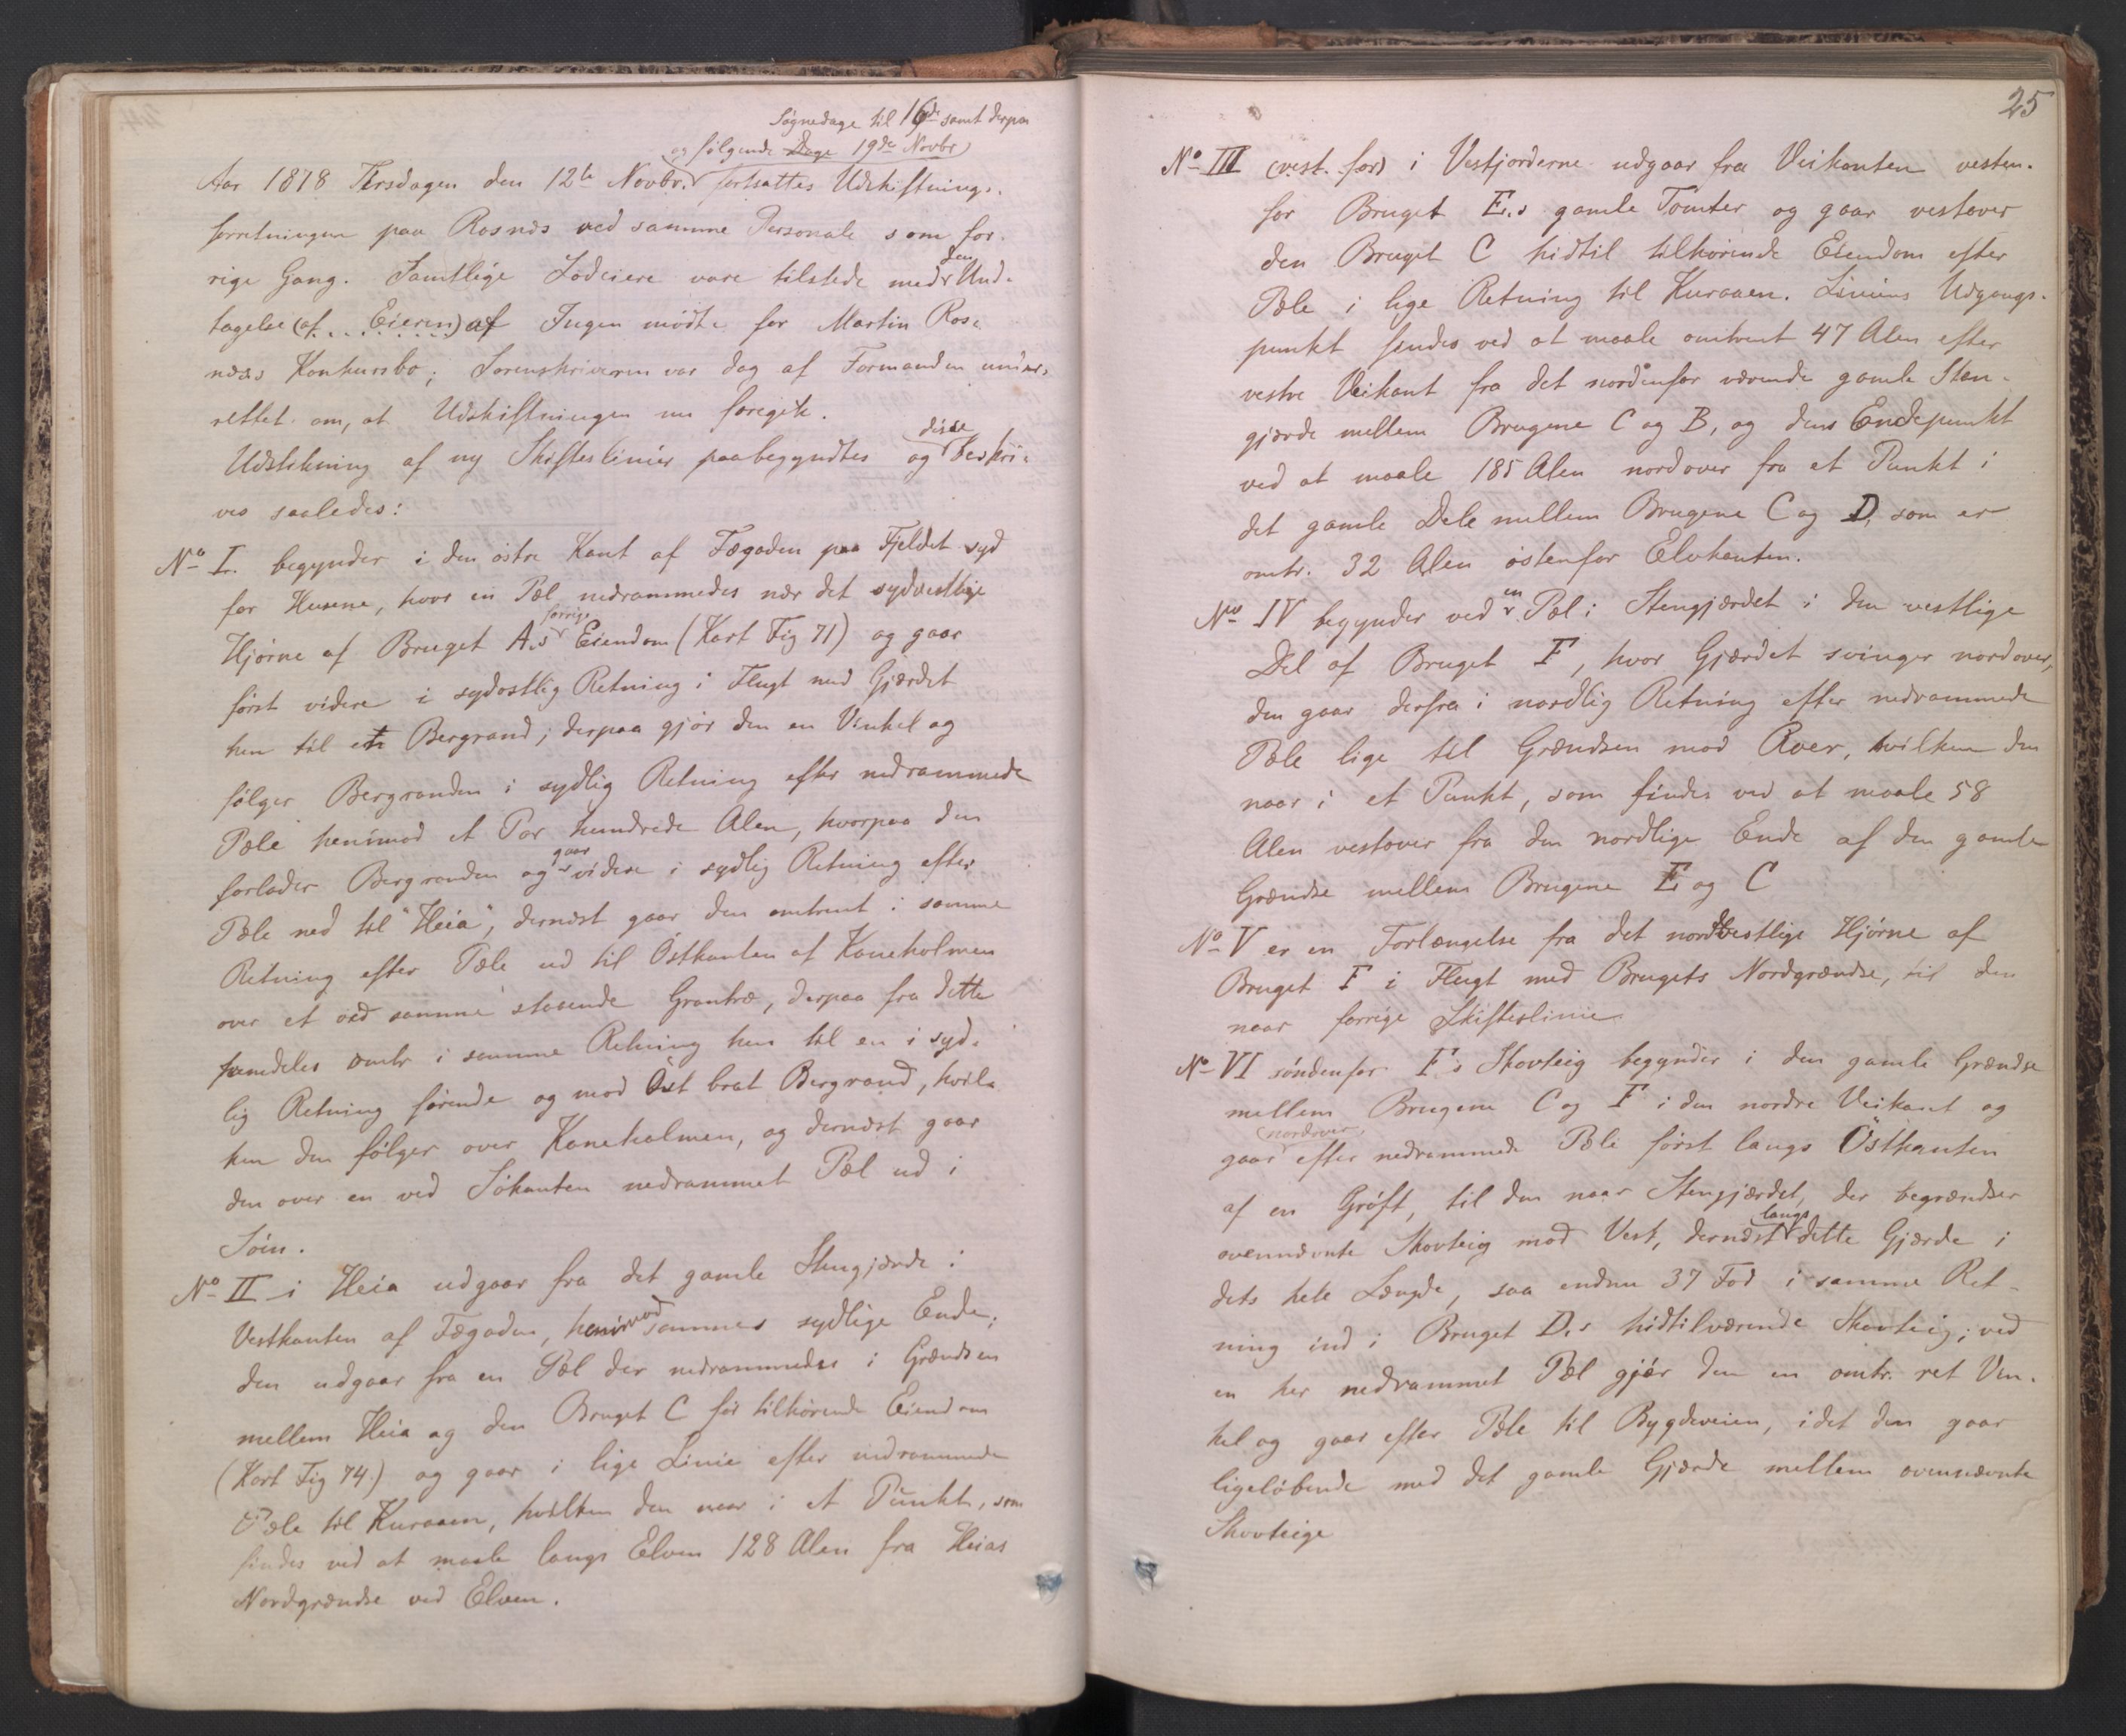 Søgnedage til 16de samt derpaa
og følgende Dage 19de Novbr
Aar 1878 Tirsdagen den 12te Novbr. fortsattes Udskiftnings-
forretningen paa Rosnæs ved samme Personale som for-
rige Gang. Samtlige Lodeiere vare tilstede med den Und-
tagelse (af Eieren) af Ingen mødte for Martin Ros-
næs Konkursbo; Sorenskriveren var dog af Formanden under-
rettet om, at Udskiftningen nu foregik.
Udstikning af ny Skifteslinier paabegyndtes og disse beskri-
ves saaledes:
No I. begynder i den østre Kant af Fægaden paa Fjeldet syd
for Husene, hvor en Pæl nedrammedes nær det sydvestlige
Hjørne af Bruget A.s forrige Eiendom (Kart Fig 71) og gaar
først videre i sydostlig Retning i Flugt med Gjærdet
hen til en Bergrand; derpaa gjør den en Vinkel og
følger Bergranden i sydlig Retning efter nedrammede
Pæle henimod et Par hundrede Alen, hvorpaa den
forlader Bergranden og gaar videre i sydlig Retning efter
Pæle ned til "Heia", dernæst gaar den omtrent i samme
Retning efter Pæle ud til Østkanten af Kaneholmen
over et ved samme staaende Grantræ, derpaa fra dette
fremdeles omtr i samme Retning hen til en i syd-
lig Retning førende og mod Øst brat Bergrand, hvil-
ken den følger over Kaneholmen, og dernæst gaar
den over en ved Søkanten nedrammet Pæl ud i
Søen.
No II i Heia udgaar fra det gamle Stengjærde i
Vestkanten af Fægaden, henimod sammes sydlige Ende;
den udgaar fra en Pæl der nedrammedes i Grændsen
mellem Heia og den Bruget C før tilhørende Eiendom
(Kart Fig 74) og gaar i lige Linie efter nedrammede
Pæle til Kuraaen, hvilken den naar i et Punkt, som
findes ved at maale langs Elven 128 Alen fra Heias
Nordgrændse ved Elven.
25
No III (vest. for) i Vestjorderne udgaar fra Veikanten vesten-
for Bruget E.s gamle Tomter og gaar vestover
den Bruget C hidtil tilhørende Eiendom efter
Pæle i lige Retning til Kuraaen. Liniens Udgangs-
punkt findes ved at maale omtrent 47 Alen efter
vestre Veikant fra det nordenfor værende gamle Sten-
gjærde mellem Brugene C og B, og dens Endepunkt
ved at maale 185 Alen nordover fra et Punkt i
det gamle Dele mellem Brugene C og D, som er
omtr. 32 Alen østenfor Elvkanten.
No IV begynder ved en Pæl i Stengjærdet i den vestlige
Del af Bruget F, hvor Gjærdet svinger nordover,
den gaar derfra i nordlig Retning efter nedrammede
Pæle lige til Grændsen mod Aver, hvilken den
naar i et Punkt, som findes ved at maale 58
Alen vestover fra den nordlige Ende af den gamle
Grændse mellem Brugene E og C
No V er en Forlængelse fra det nordvestlige Hjørne af
Bruget F i Flugt med Brugets Nordgrændse, til den
naar forrige Skifteslinie
No VI søndenfor F.s Skovteig begynder i den gamle Grændse
mellem Brugene C og F i den nordre Veikant og
gaar nordover efter nedrammede Pæle først langs Østkanten
af en Grøft, til den naar Stengjærdet, der begrændser
ovennævnte Skovteig mod Vest, dernæst langs dette Gjærde i
dets hele Længde, saa endnu 37 Fod i samme Ret-
ning ind i Bruget D.s hidtilværende Skovteig; ved
en her nedrammet Pæl gjør den en omtr. ret Vin-
kel og gaar efter Pæle til Bygdeveien, idet den gaar
ligeløbende med det gamle Gjærde mellem ovennævnte
Skovteige